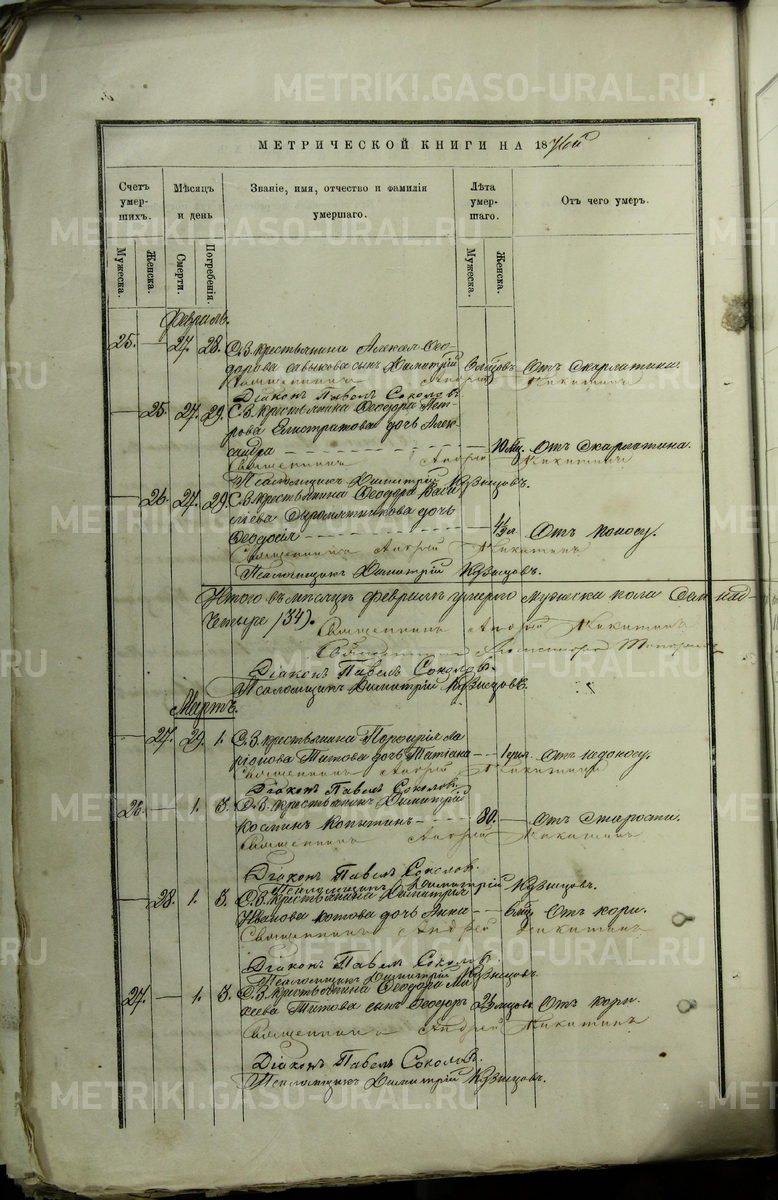 METRIKI.GASO-URAL.RU
МЕТРИЧЕСКОЙ КНИГИ НА 1876й
Счетъ умерших. Мѣсяцъ и день Званіе, имя, отчество и фамилія умершаго. Лѣта умершаго. Отъ чего умеръ.
Мужеска. Женска. Смерти. Погребенія. Мужеска. Женска.
Февраль.
25. — 27. 28. С.В. крестьянина Алексея Ѳео-
дорова сынъ Димитрій мѣсяцовъ Отъ Скарлатины.
Священникъ Андрей Никитинъ
Діаконъ Павелъ Соколовъ
— 25. 27. 29. С.В. крестьянина Ѳеодора Пет-
рова Елистратова дочь Алек-
сандра 10 мц. Отъ Скарлатина.
Священникъ Андрей Никитинъ
Псаломщикъ Димитрій Кузнецовъ.
— 26. 27. 29. С.В. крестьянина Ѳеодора Васи-
лiева Сыромятникова дочь
Ѳеодосія Отъ поносу.
Священникъ Андрей Никитинъ
Псаломщикъ Димитрій Кузнецовъ.
Итого въ мѣсяцѣ февралѣ умерло мужеска пола
четыре (34).
Священникъ Андрей Никитинъ
Діаконъ Павелъ Соколовъ.
Псаломщикъ Димитрій Кузнецовъ.
Мартъ.
— 27. 29. 1. С.В. крестьянина Порфирія Ла-
ріонова Титова дочь Татіана
Священникъ Андрей Никитинъ
Діаконъ Павелъ Соколовъ.
26. — 1. 3. С.В. крестьянинъ Димитрій
Космин Копытинъ 80. — Отъ Старости.
Священникъ Андрей Никитинъ
Діаконъ Павелъ Соколовъ.
Псаломщикъ Димитрій Кузнецовъ.
— 28. 1. 3. С.В. крестьянина Димитрія
Иванова Котова дочь Анна 6 мц. Отъ кори.
Священникъ Андрей Никитинъ
Діаконъ Павелъ Соколовъ
Псаломщикъ Димитрій Кузнецовъ.
27. — 1. 3. С.В. крестьянина Ѳеодора Ми-
хеева Титова сынъ Ѳеодоръ мѣсяцовъ Отъ кори.
Священникъ Андрей Никитинъ
Діаконъ Павелъ Соколовъ.
Псаломщикъ Димитрій Кузнецовъ.